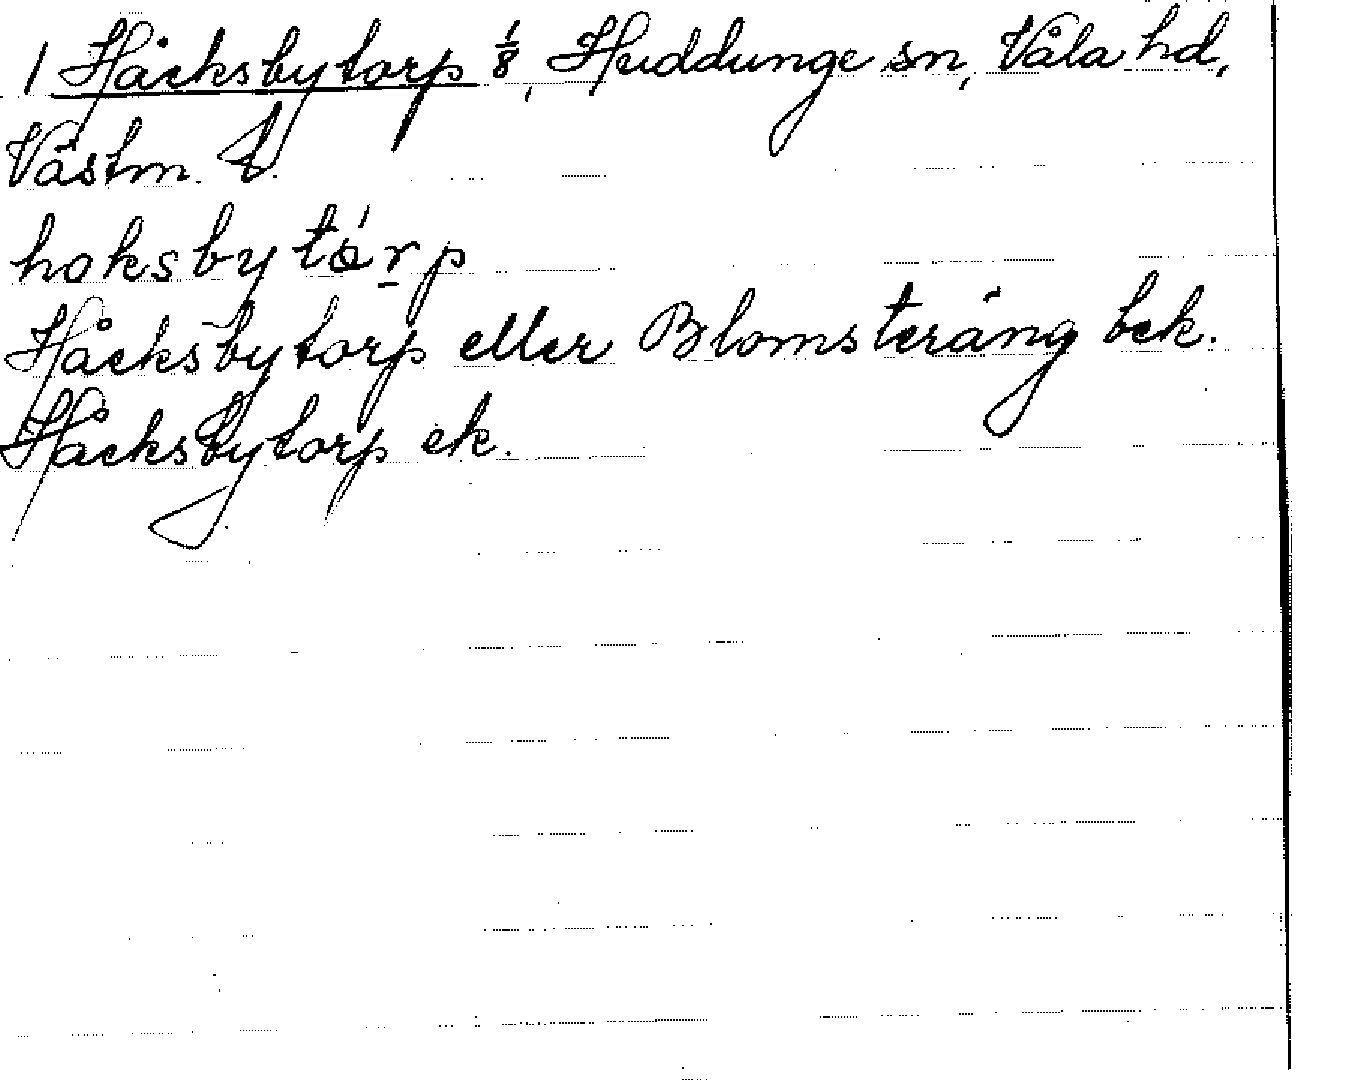 1 Håcksbytorp 1/8, Huddunge sn, Våla hd,
Västm. l.
hoksbytórp
Håcksbytorp eller Blomsteräng bek.
Håcksbytorp ek.